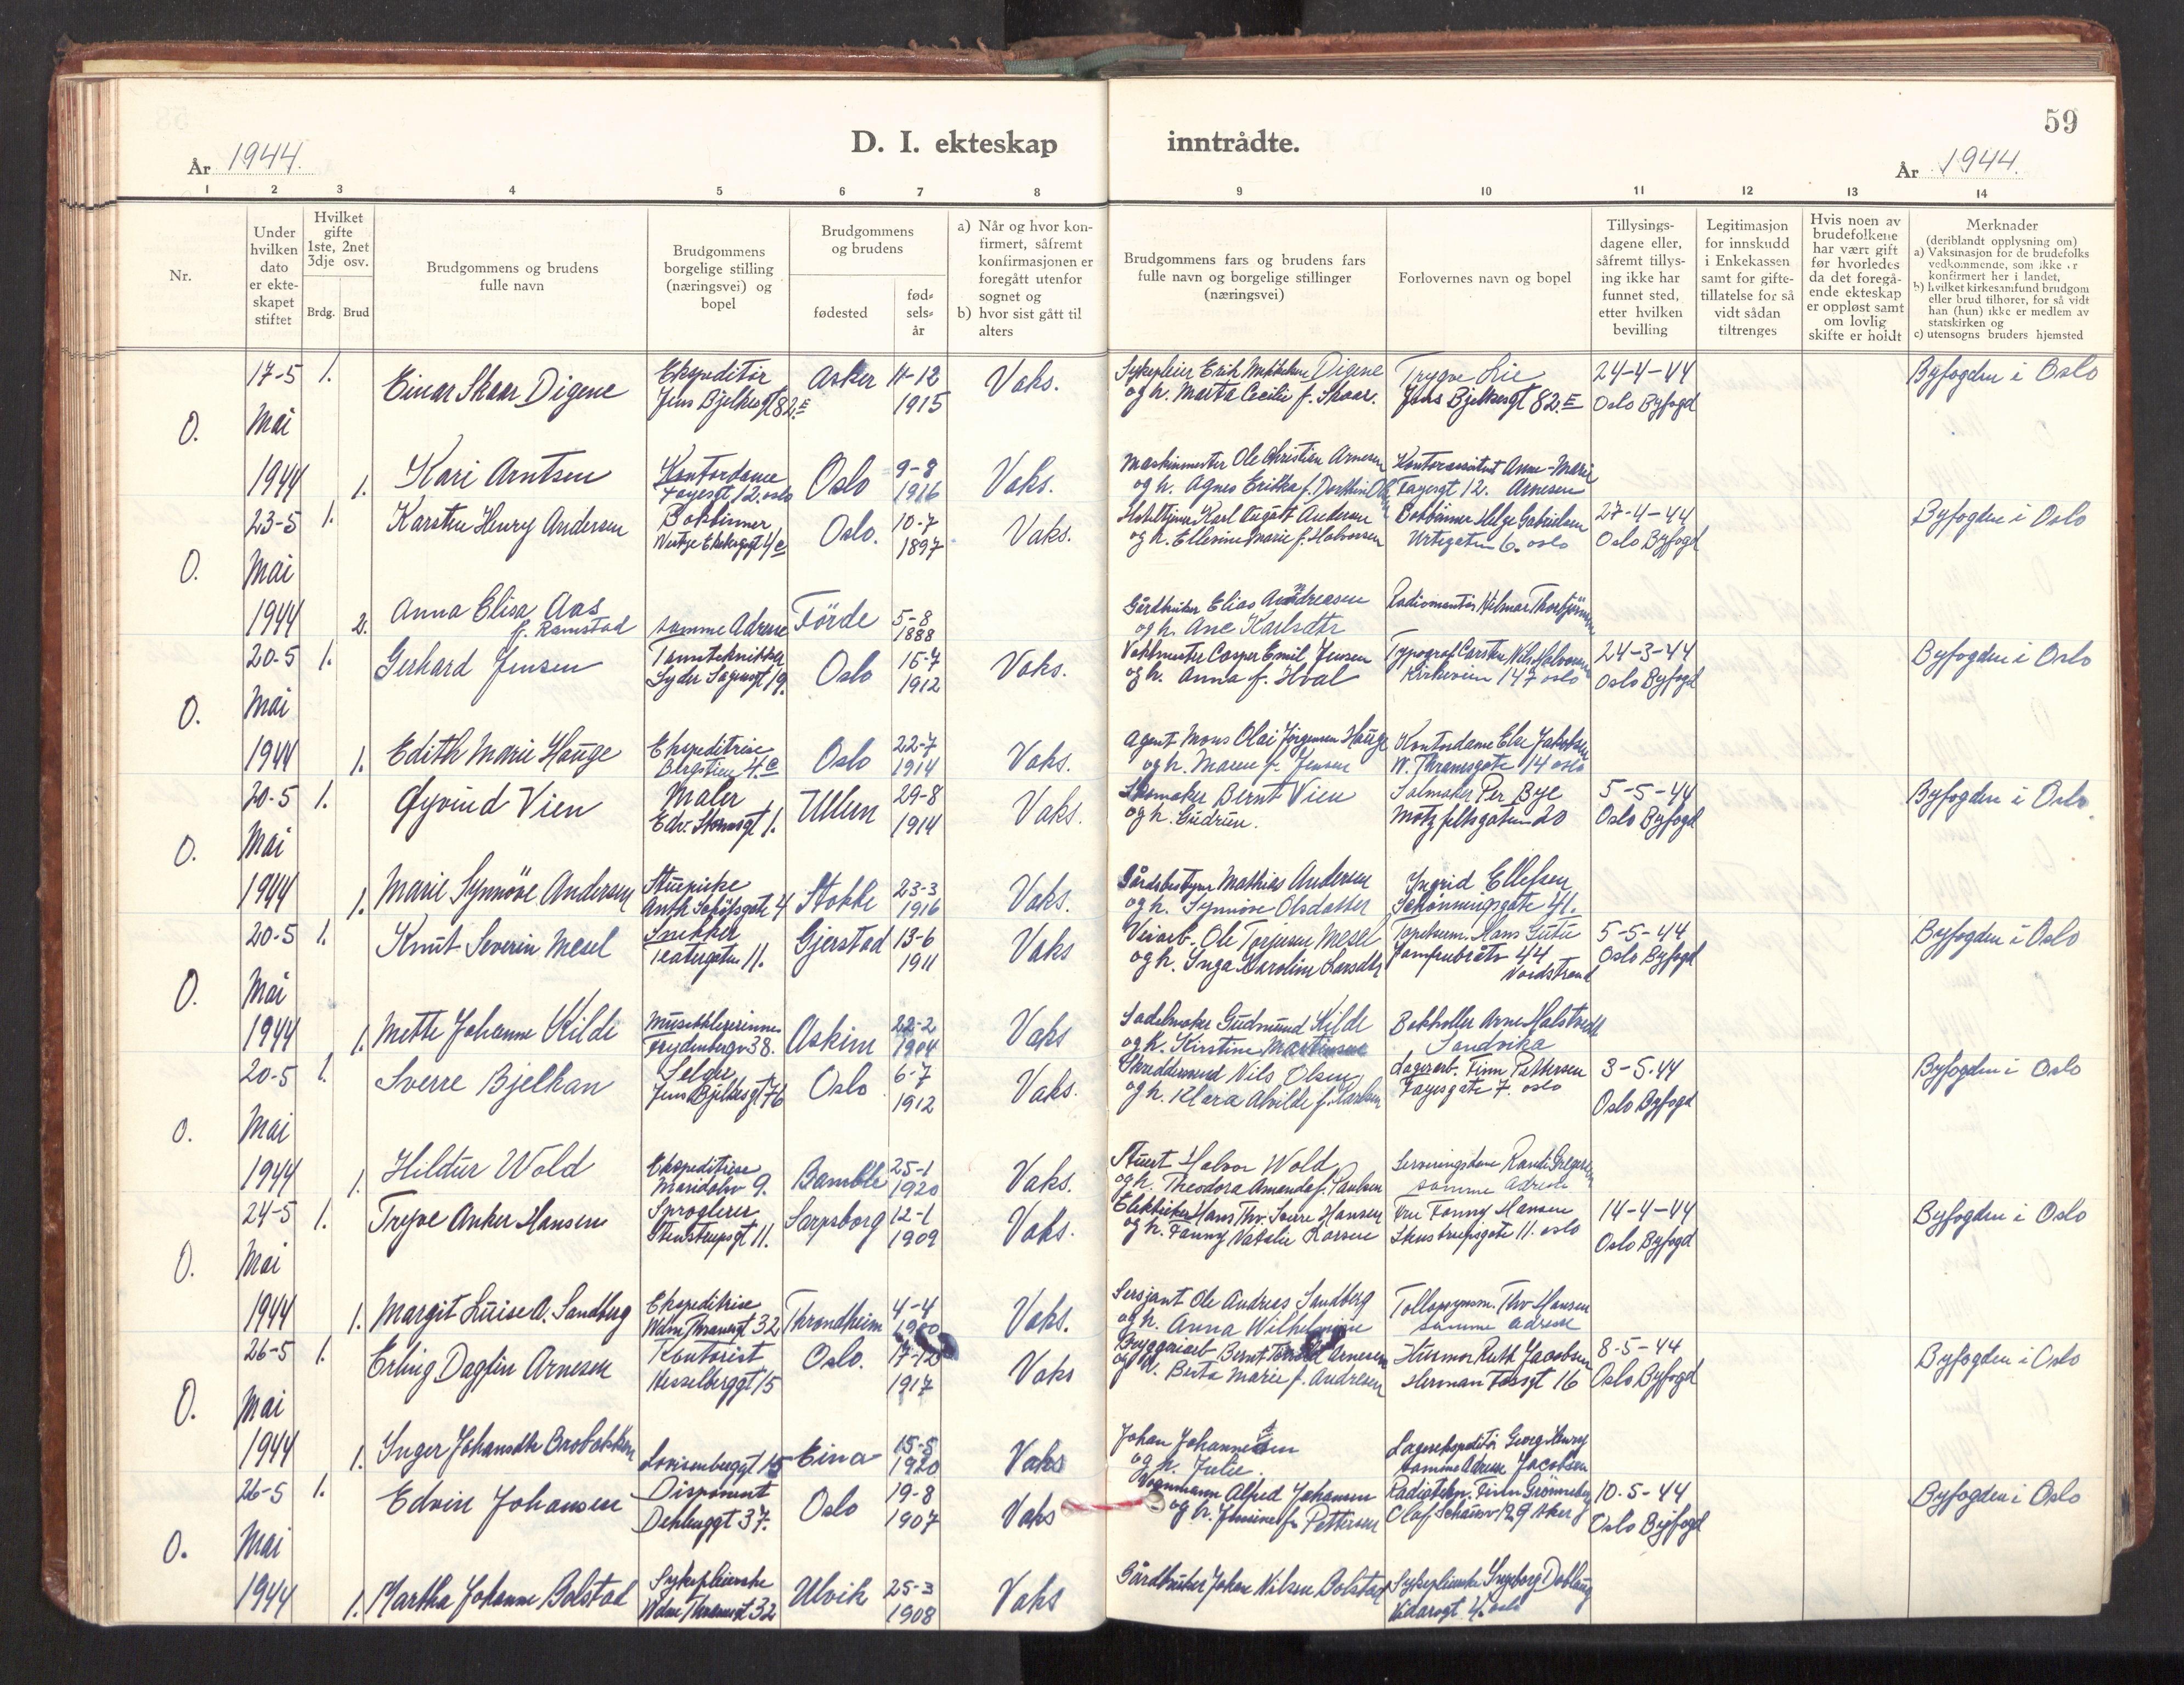 År 1944.
D. I. ekteskap
inntrådte.
59
År 1944.
1 2 3 4 5 6 7 8 9 10 11 12 13 14
Nr.
Under hvilken dato er ekteskapet stiftet
Hvilket gifte 1ste, 2net 3dje osv.
Brdg. Brud
Brudgommens og brudens fulle navn
Brudgommens borgelige stilling (næringsvei) og bopel
Brudgommens og brudens
fødested
fødselsår
a) Når og hvor konfirmert, såfremt konfirmasjonen er foregått utenfor sognet og
b) hvor sist gått til alters
Brudgommens fars og brudens fars fulle navn og borgelige stillinger (næringsvei)
Forlovernes navn og bopel
Tillysingsdagene eller, såfremt tillysing ikke har funnet sted, etter hvilken bevilling
Legitimasjon for innskudd i Enkekassen samt for giftetillatelse for så vidt sådan tiltrenges
Hvis noen av brudefolkene har vært gift før hvorledes da det foregående ekteskap er oppløst samt om lovlig skifte er holdt
Merknader
(deriblandt opplysning om)
a) Vaksinasjon for de brudefolks vedkommende, som ikke er konfirmert her i landet,
b) hvilket kirkesamfund brudgom eller brud tilhører, for så vidt han (hun) ikke er medlem av statskirken og
c) utensogns bruders hjemsted
17-5 1. Einar Skaar Digene Ekspeditør Asker 11-12 Vaks. Sykepleier Erik Digene Trygve Lie 24-4-44 Byfogden i Oslo
Jens Bjelkesgt 82 E 1915 og h. Marta Cecilie f. Skaar. Jens Bjelkesgt 82 E Oslo Byfogd
O. Mai
1944 1. Kari Arntsen Kontordame Oslo 9-8 Vaks. Maskinmester Ole Christian Arnesen Kontorassistent Anne-Marie
Fagesgt 12. oslo 1916 og h. Agnes Erikka f. Fagesgt 12. Arnesen
23-5 1. Karsten Henry Andersen Bokbinner Oslo. 10-7 Vaks. Karl August Andersen Bokbinner Helge Gabrielsen 27-4-44 Byfogden i Oslo
4c 1897 og h. Ellevine Marie f. Halvorsen Urtegaten 6. oslo Oslo Byfogd
O. Mai
1944 2. Anna Elisa Aas Förde 5-8 Gårdbruker Elias Andreasen Radiomontör Hilmar
f. Ramstad samme Adresse 1888 og h. Ane Karlsdtr
20-5 1. Gerhard Jensen Tanntekniker Oslo 15-7 Vaks. Vaktmester Casper Emil Jensen Typograf Carsten Nils Halvorsen 24-3-44 Byfogden i Oslo
Lyder Sagensgt 19. 1912 og h. Anna f. Hval Kirkeveien 147 oslo Oslo Byfogd
O. Mai
1944 1. Edith Marie Hauge Ekspeditrise Oslo 22-7 Vaks. Agent Mons Olai Jörgensen Hauge Kontordame Else Jakobsen
Bergstien 4.c 1914 og h. Maren f. Jensen W. Thranesgate 14 oslo
20-5 1. Øyvind Vien Maler Ullern 29-8 Vaks. Skomaker Bernt Vien Salmaker Per Bye 5-5-44 Byfogden i Oslo
Edv. Stormsgt 1. 1914 og h. Gudrun. Motzfeltsgaten 20 Oslo Byfogd
O. Mai
1944 1. Marie Synnöve Andersen Stuepike Stokke 23-3 Vaks. Gårdsbestyrer Mathias Andersen Ingrid Ellefsen
Anth. 4 1916 og h. Synnöve Olsdatter Schönningsgate 41.
20-5 1. Knut Severin Mesel Snekker Gjerstad 13-6 Vaks Veiarb. Ole Torjusen Mesel Hans Gutu 5-5-44 Byfogden i Oslo
Teatergaten 11. 1911 og h. Inga Karoline Larsdtr Jomfrubråtv 44 Oslo Byfogd
Nordstrand
O. Mai
1944 1. Mette Johanne Kilde Musikklærerinne Askim 22-2 Vaks Sadelmaker Gudmund Kilde Bokholler Arne Halstvedt
Frydenbergv 38. 1904 og h. Kirstine Martinsen Sandvika
20-5 1. Sverre Bjelkan Selger Oslo 6-7 Vaks. Skreddersvend Nils Olsen Lagerarb. Finn Pettersen 3-5-44 Byfogden i Oslo
Jens Bjelkesgt 76 1912 og h. Klara Alvilde f. Karlsen Fagesgate 7. oslo Oslo Byfogd
O. Mai
1944 1. Hildur Wold Ekspeditrise Bamble 25-1 Vaks. Stuert Halvor Wold Serveringsdame Randi Gregersen
Maridalsv 9. 1920 og h. Theodora Amanda f. Paulsen samme adresse
24-5 1. Trygve Anker Hansen Sproglærer Sarpsborg 12-1 Vaks. Elektriker Hans Thv. Sverre Hansen Fru Fanny Hansen 14-4-44 Byfogden i Oslo
Stenstrupsgt 11. 1909 og h. Fanny Natalie Larsen Stenstrupsgate 11. oslo Oslo Byfogd
O. Mai
1944 1. Margit Luise A. Sandberg Ekspeditrise Throndheim 4-4 Vaks. Sersjant Ole Andreas Sandberg Tollopsynsm. Thv Hansen
Wdm Thranesgt 32 1900 og h. Anna Wilhelmine samme adresse
26-5 1. Erling Dagfin Arnesen Kontorist Oslo. 17-12 Vaks Bryggeriarb Bernt Arnesen Husmor Ruth Jacobsen 8-5-44 Byfogden i Oslo
Hesselberggt 15 1917 og h. Berta Marie f. Andresen Herman Fossgt 16 Oslo Byfogd
O. Mai
1944 1. Inger Johansdtr Brobakken Eina 15-5 Vaks Johan Johannessen Lagerekspeditör Georg Henry
Lovisenberggt 15 1920 og h. Julie. samme Adresse Jacobsen
26-5 1. Edvin Johansen Disponent Oslo 19-8 Vaks Vognmann Alfred Johansen Radiotekn. Finn Grönneberg 10-5-44 Byfogden i Oslo
Dehlenggt 37. 1907 og h. f. Pettersen Olaf 29 Aker Oslo Byfogd
O. Mai
1944 1. Martha Johanne Bolstad Sykepleierske Ulvik 25-3 Vaks Gårdbruker Johan Nilsen Bolstad Sykepleierske Ingborg Doblaug
Wdm Thranesgt 32 1908 Vidarsgt 4. oslo